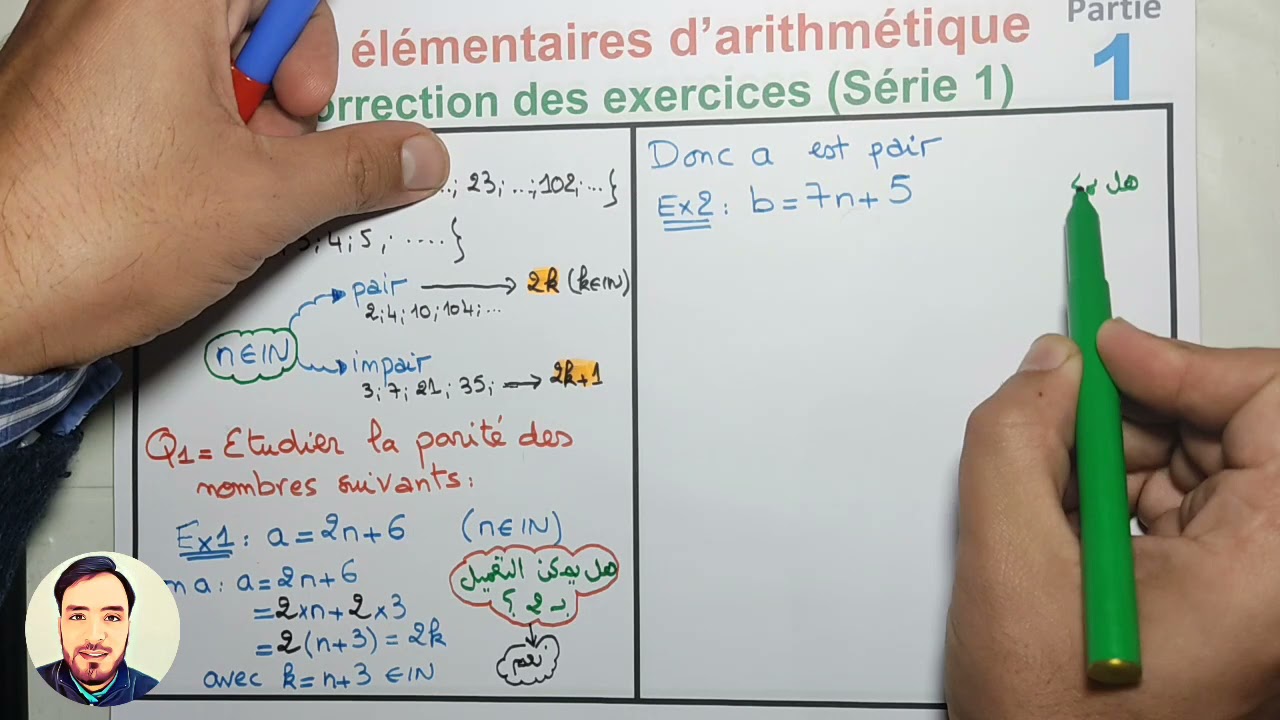 élémentaires d'arithmétique
Partie
1
orrection des exercices (Série 1)
...; 23; ...; 102; ...}
; 4; 5; ....}
pair → 2k (k∈IN)
2; 4; 10; 104; ...
n∈IN
impair
3; 7; 21; 35; → 2k+1
Q1 = Etudier la parité des
nombres suivants:
Ex1: a = 2n+6 (n∈IN)
هل يمكن التعميل
بـ 2 ؟
نعم
n a: a = 2n+6
= 2×n + 2×3
= 2(n+3) = 2k
avec k = n+3 ∈ IN
Donc a est pair
Ex2: b = 7n + 5
هل